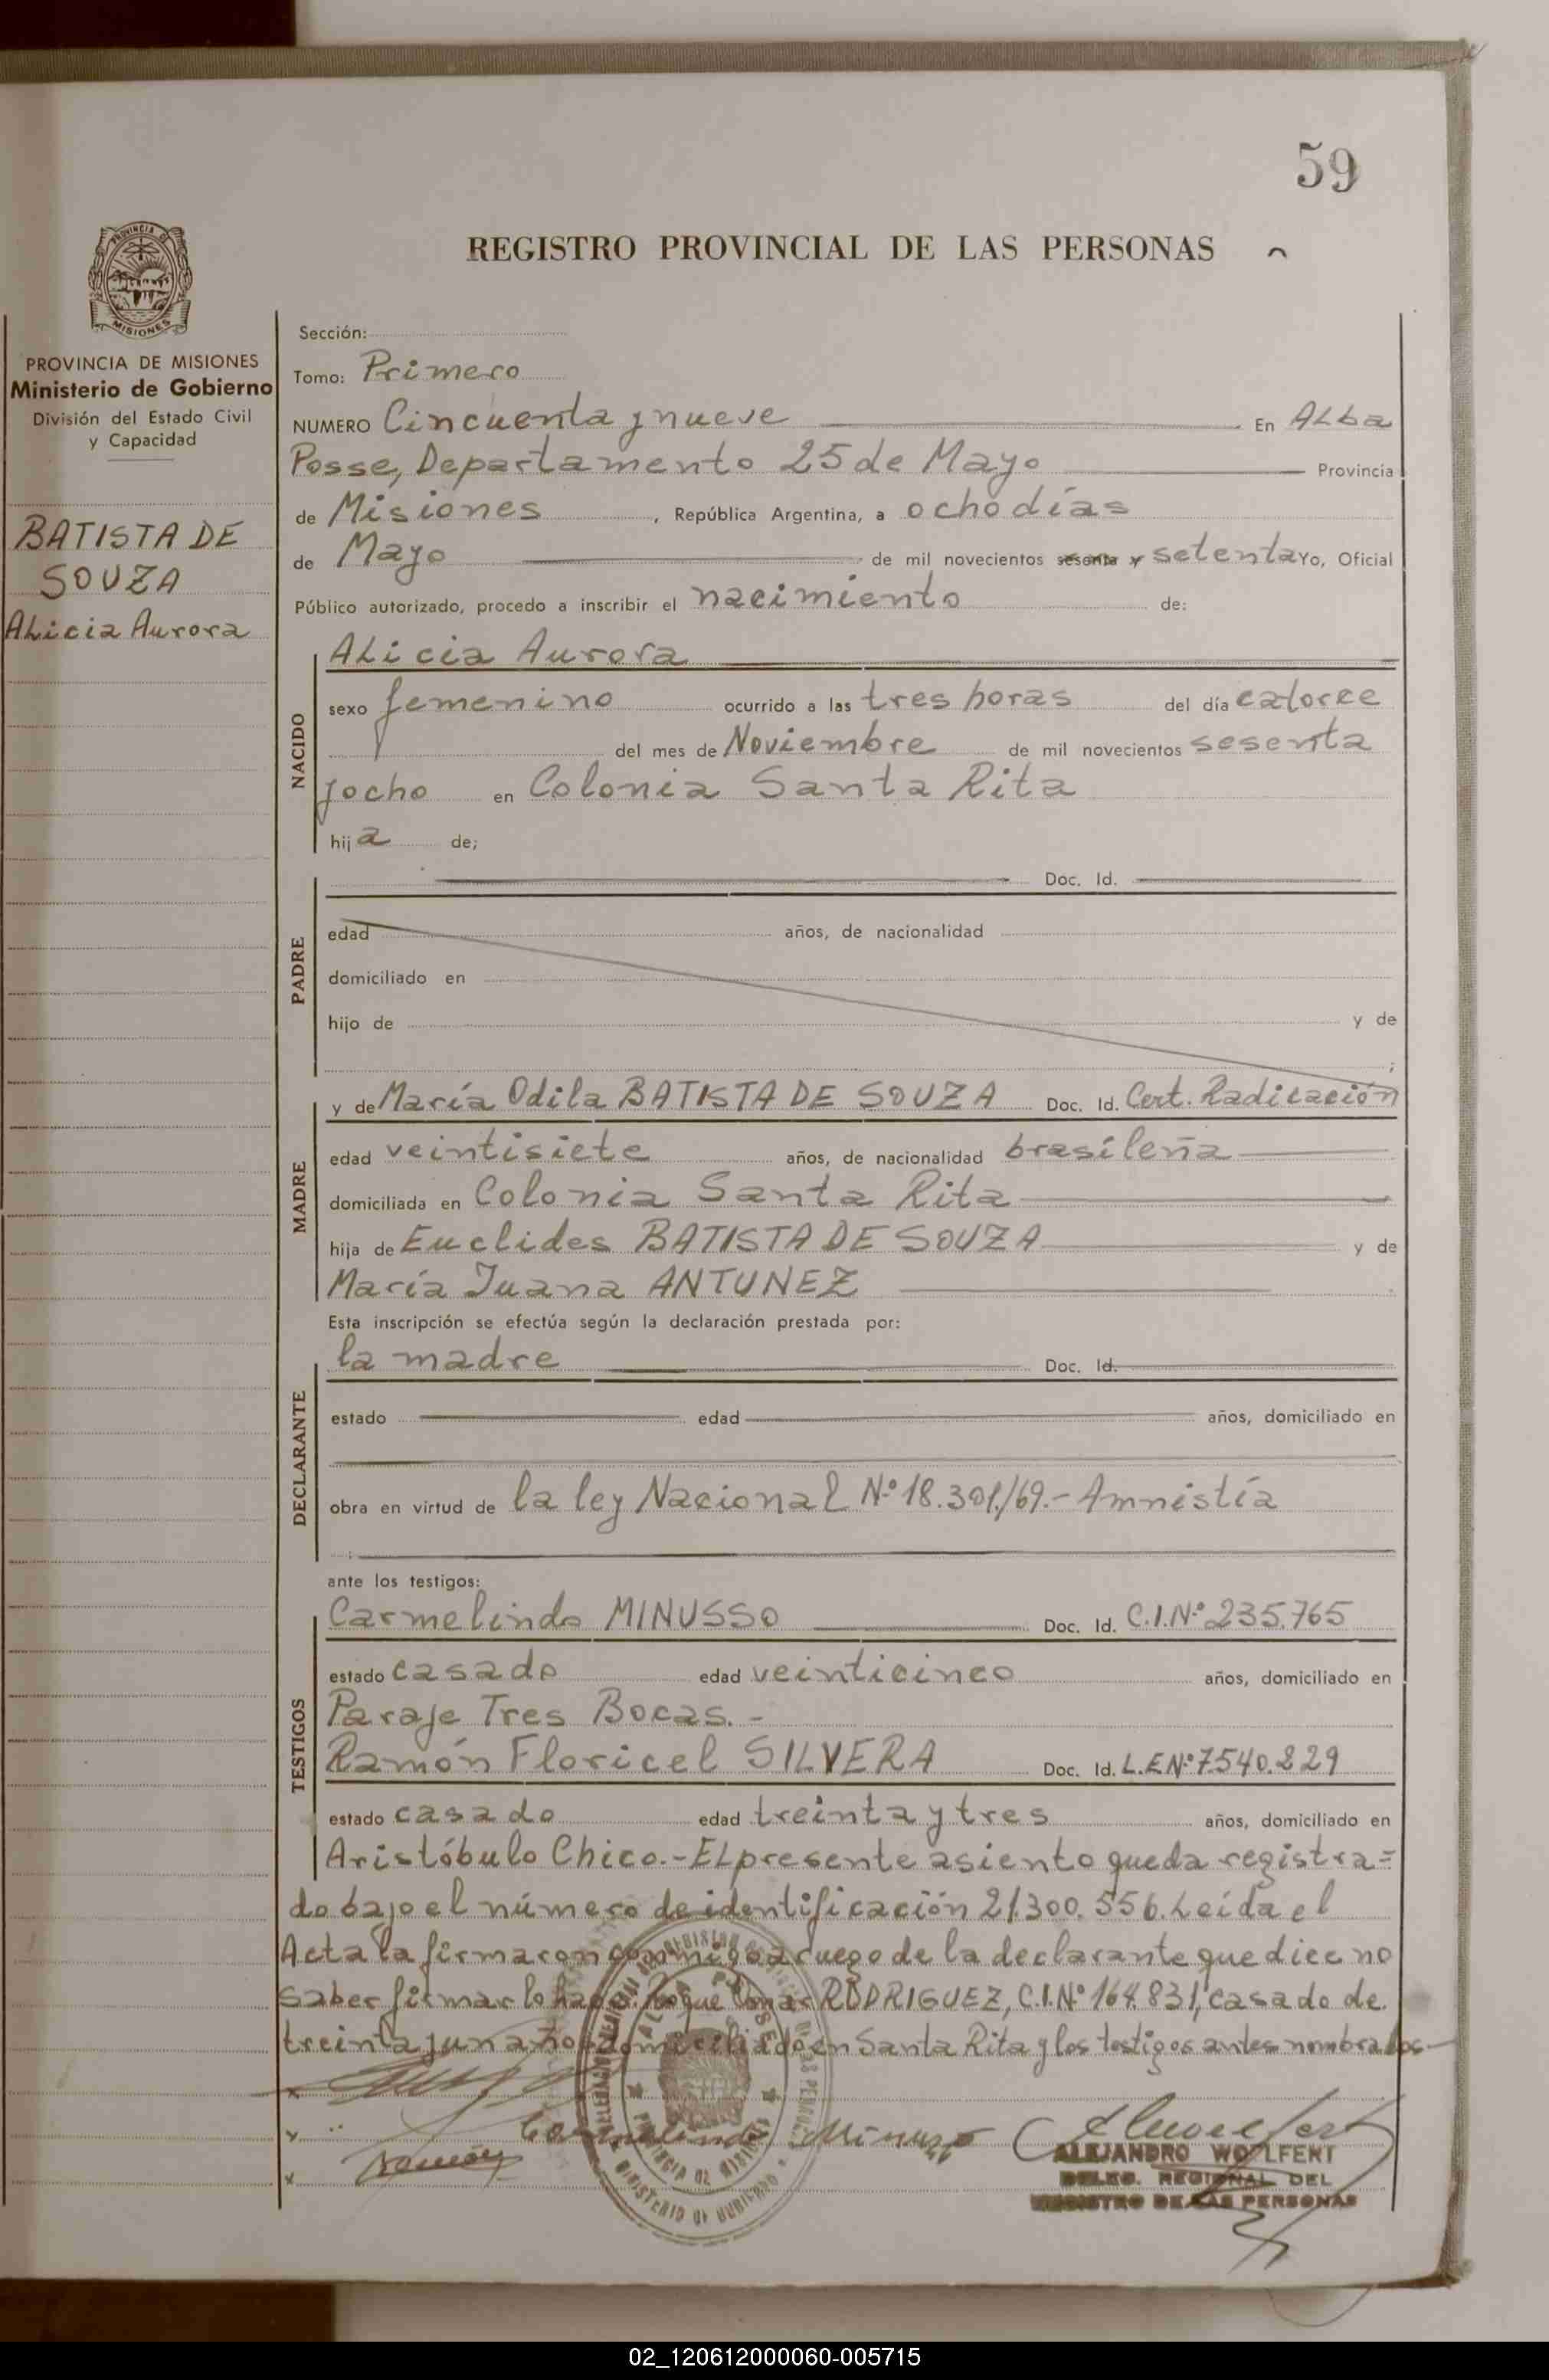 59
REGISTRO PROVINCIAL DE LAS PERSONAS
PROVINCIA DE MISIONES
Ministerio de Gobierno
División del Estado Civil
y Capacidad
BATISTA DE
SOUZA
Alicia Aurora
Sección:
Tomo: Primero
NUMERO Cincuenta y nueve En Alba
Posse, Departamento 25 de Mayo Provincia
de Misiones, República Argentina, a ocho días
de Mayo de mil novecientos sesenta y setenta Yo, Oficial
Público autorizado, procedo a inscribir el nacimiento de:
NACIDO
Alicia Aurora
sexo femenino ocurrido a las tres horas del día catorce
del mes de Noviembre de mil novecientos sesenta
y ocho en Colonia Santa Rita
hija de;
PADRE
Doc. Id.
edad años, de nacionalidad
domiciliado en
hijo de y de
;
MADRE
y de María Odila BATISTA DE SOUZA Doc. Id. Cert. Radicación
edad veintisiete años, de nacionalidad brasileña
domiciliada en Colonia Santa Rita
hija de Euclides BATISTA DE SOUZA y de
María Juana ANTUNEZ
Esta inscripción se efectúa según la declaración prestada por:
DECLARANTE
la madre Doc. Id.
estado edad años, domiciliado en
obra en virtud de la ley Nacional Nº 18.301/69.- Amnistía
ante los testigos:
TESTIGOS
Carmelindo MINUSSO Doc. Id. C.I.Nº 235.765
estado casado edad veinticinco años, domiciliado en
Paraje Tres Bocas.-
Ramón Floricel SILVERA Doc. Id. L.E.Nº 7.540.829
estado casado edad treinta y tres años, domiciliado en
Aristóbulo Chico.- El presente asiento queda registra=
do bajo el número de identificación 21.300.556. Leída el
Acta la firmaron conmigo a ruego de la declarante que dice no
saber firmar lo hace Roque RODRIGUEZ, C.I.Nº 164.831, casado de
treinta y un años domiciliado en Santa Rita y los testigos antes nombrados-
Carmelindo Minusso
Ramón
ALEJANDRO WOLFERT
DELEG. REGIONAL DEL
REGISTRO DE LAS PERSONAS
02_120612000060-005715